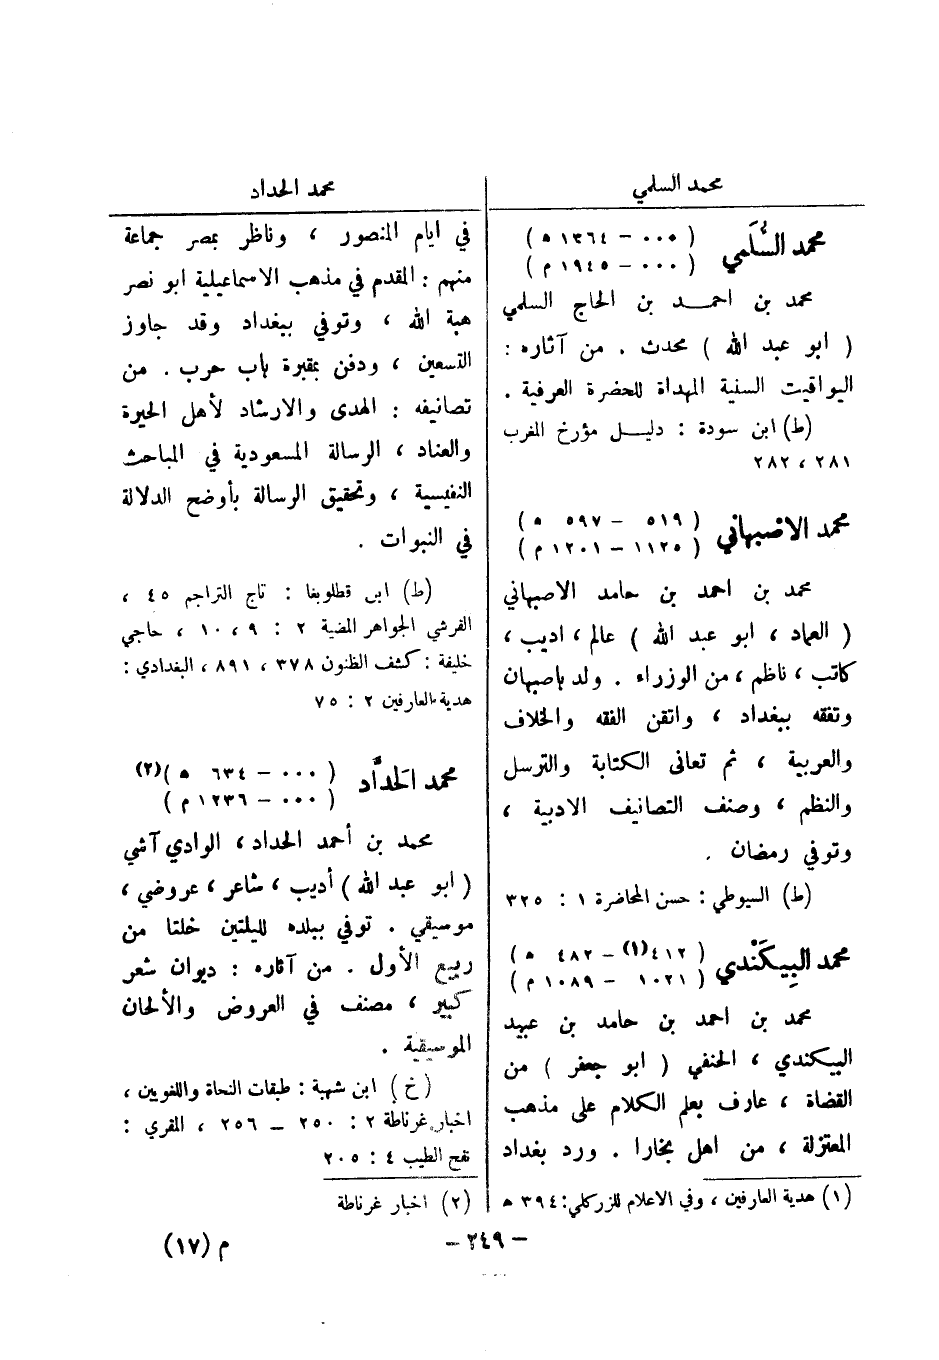 محمد السلمي
محمد السُّلَمي
( ٠٠٠ - ١٣٦٤ ه )
( ٠٠٠ - ١٩٤٥ م )
محمد بن احمد بن الحاج السلمي
( ابو عبد الله ) محدث . من آثاره :
اليواقيت السنية المهداة للحضرة العرفية .
(ط) ابن سودة : دليل مؤرخ المغرب
٢٨١ ، ٢٨٢
محمد الاصبهاني
( ٥١٩ - ٥٩٧ ه )
( ١١٢٥ - ١٢٠١ م )
محمد بن احمد بن حامد الاصبهاني
( العماد ، ابو عبد الله ) عالم ، اديب ،
كاتب ، ناظم ، من الوزراء . ولد باصبهان
وتفقه ببغداد ، واتقن الفقه والخلاف
والعربية ، ثم تعانى الكتابة والترسل
والنظم ، وصنف التصانيف الادبية ،
وتوفي رمضان .
(ط) السيوطي : حسن المحاضرة ١ : ٣٢٥
محمد البِيكَنْدي
( ٤١٢(١) - ٤٨٢ ه )
( ١٠٢١ - ١٠٨٩ م )
محمد بن احمد بن حامد بن عبيد
البيكندي ، الحنفي ( ابو جعفر ) من
القضاة ، عارف بعلم الكلام على مذهب
المعتزلة ، من اهل بخارا . ورد بغداد
(١) هدية العارفين ، وفي الاعلام للزركلي: ٣٩٤ ه
محمد الحداد
في ايام المنصور ، وناظر بمصر جماعة
منهم : المقدم في مذهب الاسماعيلية ابو نصر
هبة الله ، وتوفي ببغداد وقد جاوز
التسعين ، ودفن بمقبرة باب حرب . من
تصانيفه : الهدى والارشاد لأهل الحيرة
والعناد ، الرسالة المسعودية في المباحث
النفيسية ، وتحقيق الرسالة بأوضح الدلالة
في النبوات .
(ط) ابن قطلوبغا : تاج التراجم ٤٥ ،
القرشي الجواهر المضية ٢ : ٩ ، ١٠ ، حاجي
خليفة : كشف الظنون ٣٧٨ ، ٨٩١ ، البغدادي :
هدية العارفين ٢ : ٧٥
محمد الحدَّاد
( ٠٠٠ - ٦٣٤ ه )(٢)
( ٠٠٠ - ١٢٣٦ م )
محمد بن أحمد الحداد ، الوادي آشي
( ابو عبد الله ) أديب ، شاعر ، عروضي ،
موسيقي . توفي ببلده لليلتين خلتا من
ربيع الأول . من آثاره : ديوان شعر
كبير ، مصنف في العروض والألحان
الموسيقية .
(خ) ابن شهبة : طبقات النحاة واللغويين ،
اخبار غرناطة ٢ : ٢٥٠ - ٢٥٦ ، المقري :
نفح الطيب ٤ : ٢٠٥
(٢) اخبار غرناطة
- ٢٤٩ -
م (١٧)